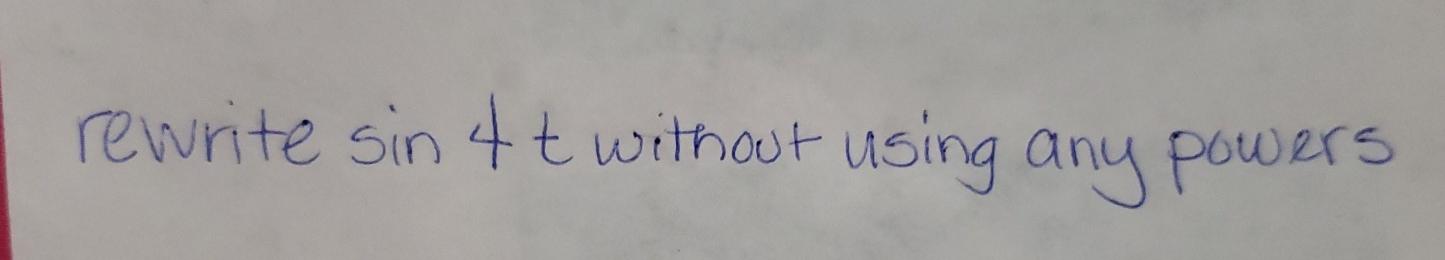 rewrite sin 4 t without using any powers